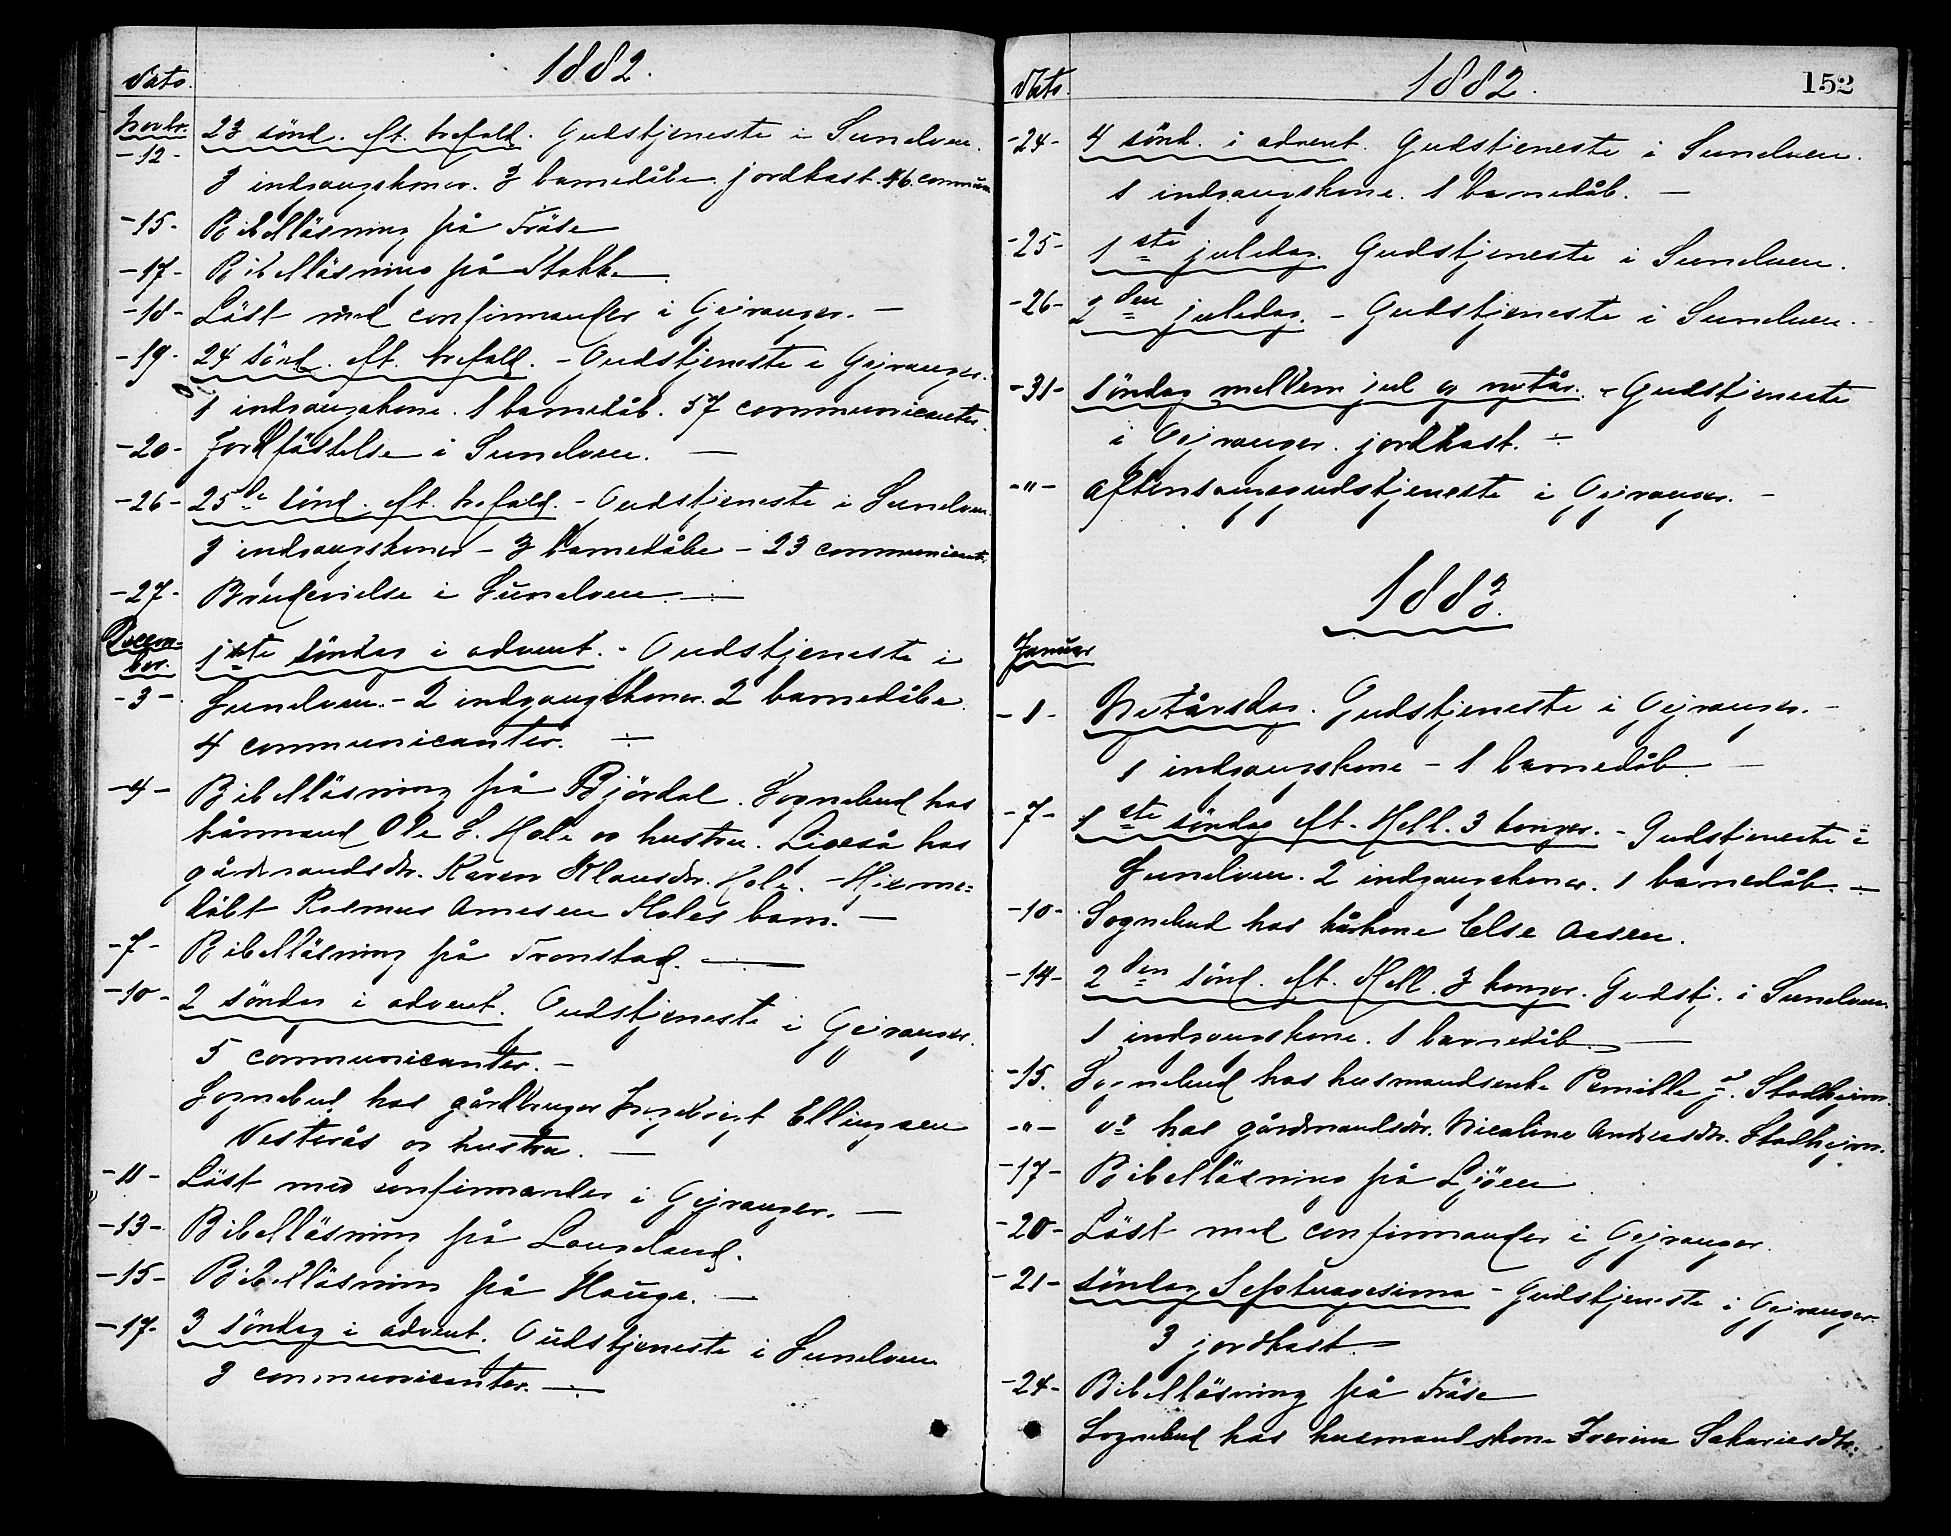 1882.
Dato.
Novbr.
-12- 23 sönd. eft. trefold. Gudstjeneste i Sunelven.
3 indgangskoner. 3 barnedåbe. jordkast. 46 commun
-15- Bibelläsning på Fröse
-17- Bibelläsning på Stokke
-18- Läst med confirmander i Gejranger. -
-19- 24 sönd. eft. trefold. - Gudstjeneste i Gejranger.
1 indgangskone. 1 barnedåb. 57 communicanter.
-20- Jordfästelse i Sunelven. -
-26- 25de sönd. eft. trefold. - Gudstjeneste i Sunelven
3 indgangskoner - 3 barnedåbe - 23 communicant.
-27- Brudevielse i Sunelven. -
Decem-
ber.
1ste söndag i advent. - Gudstjeneste i
-3- Sunelven. - 2 indgangskoner. 2 barnedåbe.
4 communicanter. -
-4- Bibelläsning på Björdal. Sognebud hos
kårmand Ole L. Hole og hustru. Ligeså hos
gårdmandsdtr. Karen Klausdtr. Hole. - Hjemme-
döbt Rasmus Arnesen Holes barn. -
-7- Bibelläsning på Tronstad. -
-10- 2 söndag i advent. Gudstjeneste i Gejranger.
5 communicanter. -
Sognebud hos gårdbruger Ingebrigt Ellingsen
Vesterås og hustru. -
-11- Läst med confirmander i Gejranger. -
-13- Bibelläsning på Langeland.
-15- Bibelläsning på Hauge. -
-17- 3 söndag i advent. Gudstjeneste i Sunelven
3 communicanter. -
1882.
152
Dato.
-24- 4 sönd. i advent. Gudstjeneste i Sunelven.
1 indgangskone. 1 barnedåb. -
-25- 1ste juledag. Gudstjeneste i Sunelven.
-26- 2den juledag. - Gudstjeneste i Sunelven.
-31- Söndag mellem jul og nytår. - Gudstjeneste
i Gejranger. jordkast. -
-"- Aftensangsgudstjeneste i Gejranger. -
1883.
Januar
-1- Nytårsdag. Gudstjeneste i Gejranger. -
1 indgangskone - 1 barnedåb. -
-7- 1ste söndag eft. Hell. 3 konger. - Gudstjeneste i
Sunelven. 2 indgangskoner. 1 barnedåb. -
-10- Sognebud hos kårkone Else Aasen.
-14- 2den sönd. eft. Hell. 3 konger. Gudstj. i Sunelven.
1 indgangskone. 1 barnedåb. -
-15. Sognebud hos husmandsenke Pernille J. Stadheim.
-"- do hos gårdmandsdtr. Nicoline Andreasdtr. Stadheim.
-17- Bibelläsning på Ljöen
-20- Läst med confirmander i Gejranger.
-21- Söndag Septuagesima - Gudstjeneste i Gejranger.
3 jordkast. -
-24- Bibelläsning på Fröse
Sognebud hos husmandskone Sakariasdtr.